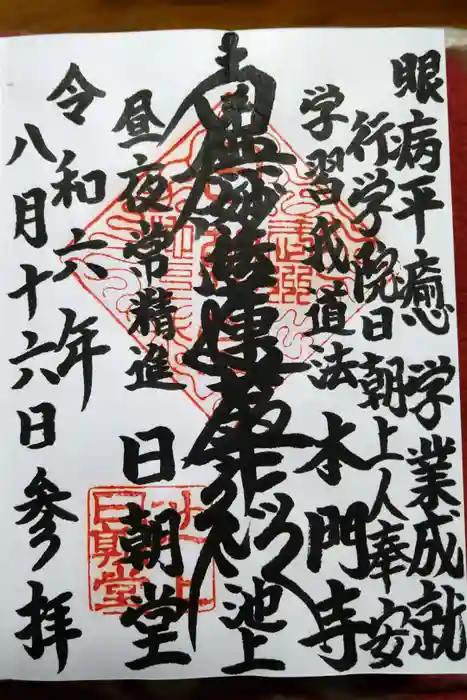 眼病平癒 学業成就
行学院日朝上人奉安
学習我道法
本門寺
南無妙法蓮華経
池上
昼夜常精進
日朝堂
令和六年
八月十六日参拝
池上
日朝堂